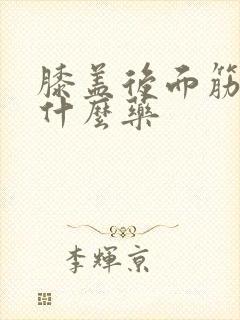 膝盖後而筋
什麼藥
李輝京